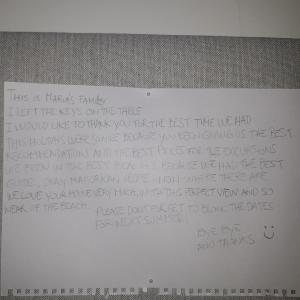 THIS IS MARIA'S FAMILY
I LEFT THE KEYS ON THE TABLE
I WOULD LIKE TO THANK YOU FOR THE BEST TIME WE HAD
THIS HOLIDAYS WERE BECAUSE YOU GIVING US THE BEST
RECOMMENDATIONS AND THE BEST PRICES FOR THE EXCURSIONS
WE EVEN THE BEST BECAUSE WE HAD THE BEST
GUIDE, ONLY MAJORCAN PEOPLE KNOW WHERE THERE ARE
WE LOVE YOUR HOUSE VERY MUCH, WITH THIS PERFECT VIEW AND SO
NEAR OF THE BEACH.
PLEASE DON'T FORGET TO BLOCK THE DATES
FOR NEXT SUMMER!!
BYE BYE
AND THANKS